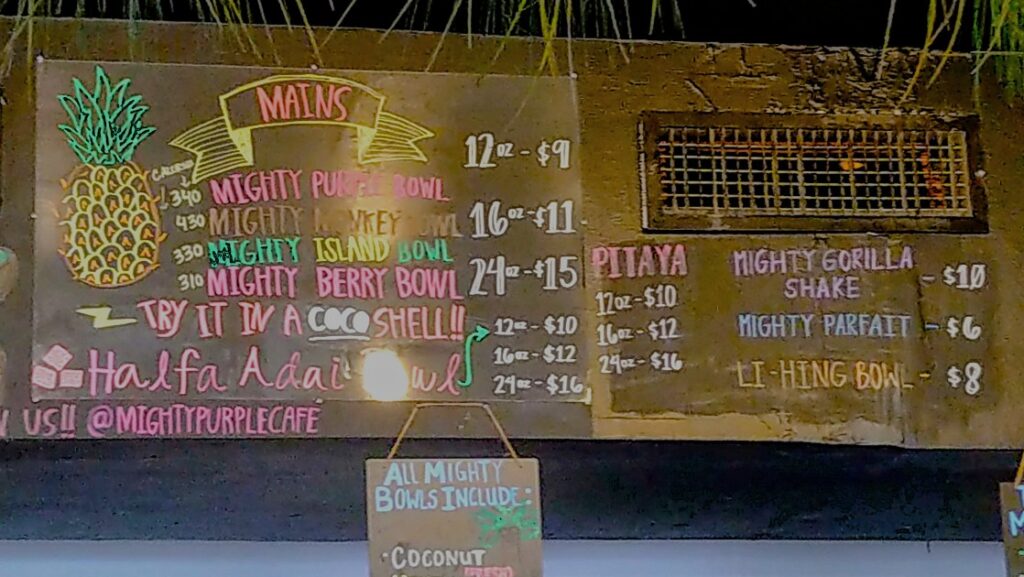 MAINS
CALORIES
340 MIGHTY PURPLE BOWL
430 MIGHTY MONKEY BOWL
330 MIGHTY ISLAND BOWL
310 MIGHTY BERRY BOWL
12oz - $9
16oz - $11
24oz - $15
TRY IT IN A COCO SHELL!!
Halfa Adai Bowl
12oz - $10
16oz - $12
24oz - $16
US!! @MIGHTYPURPLECAFE
PITAYA
12oz - $10
16oz - $12
24oz - $16
MIGHTY GORILLA
SHAKE - $10
MIGHTY PARFAIT - $6
LI-HING BOWL - $8
ALL MIGHTY
BOWLS INCLUDE:
·COCONUT